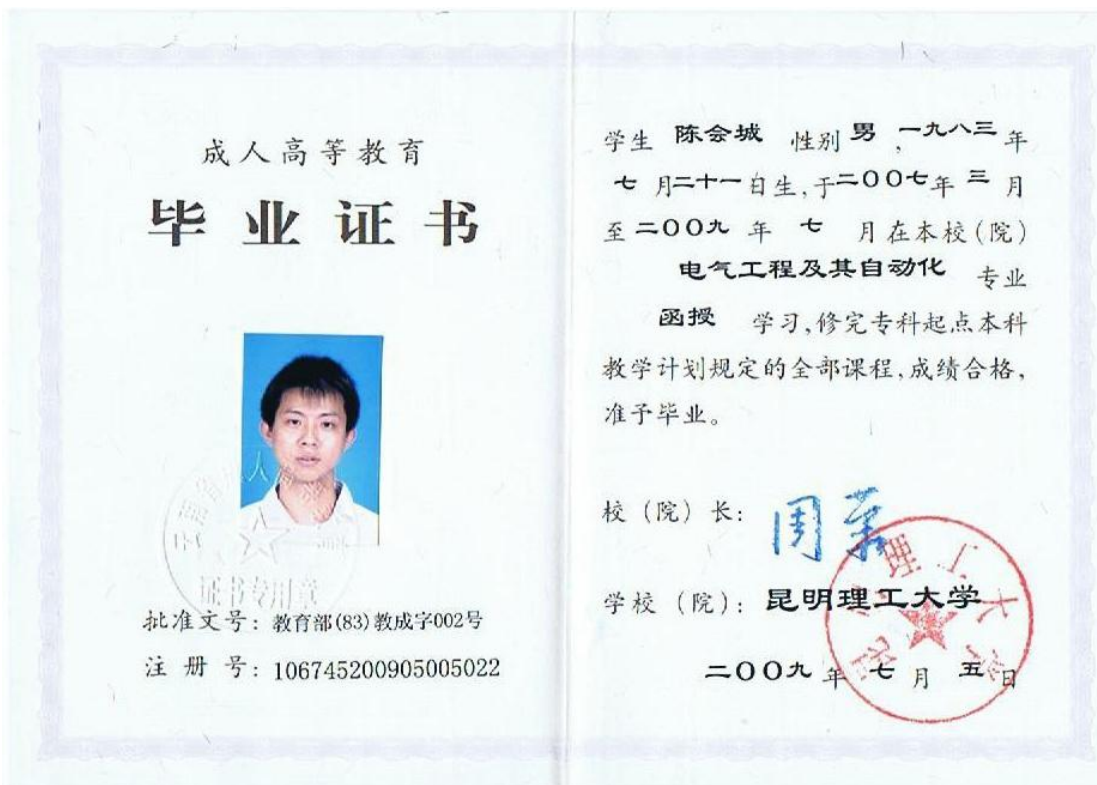 成人高等教育
毕业证书
证书专用章
批准文号：教育部(83)教成字002号
注册号：106745200905005022
学生 陈会城 性别 男，一九八三年
七月二十一日生，于二〇〇七年三月
至二〇〇九年七月在本校(院)
电气工程及其自动化 专业
函授 学习，修完专科起点本科
教学计划规定的全部课程，成绩合格，
准予毕业。
校（院）长：
学校（院）：昆明理工大学
昆明理工大学
二〇〇九年七月五日